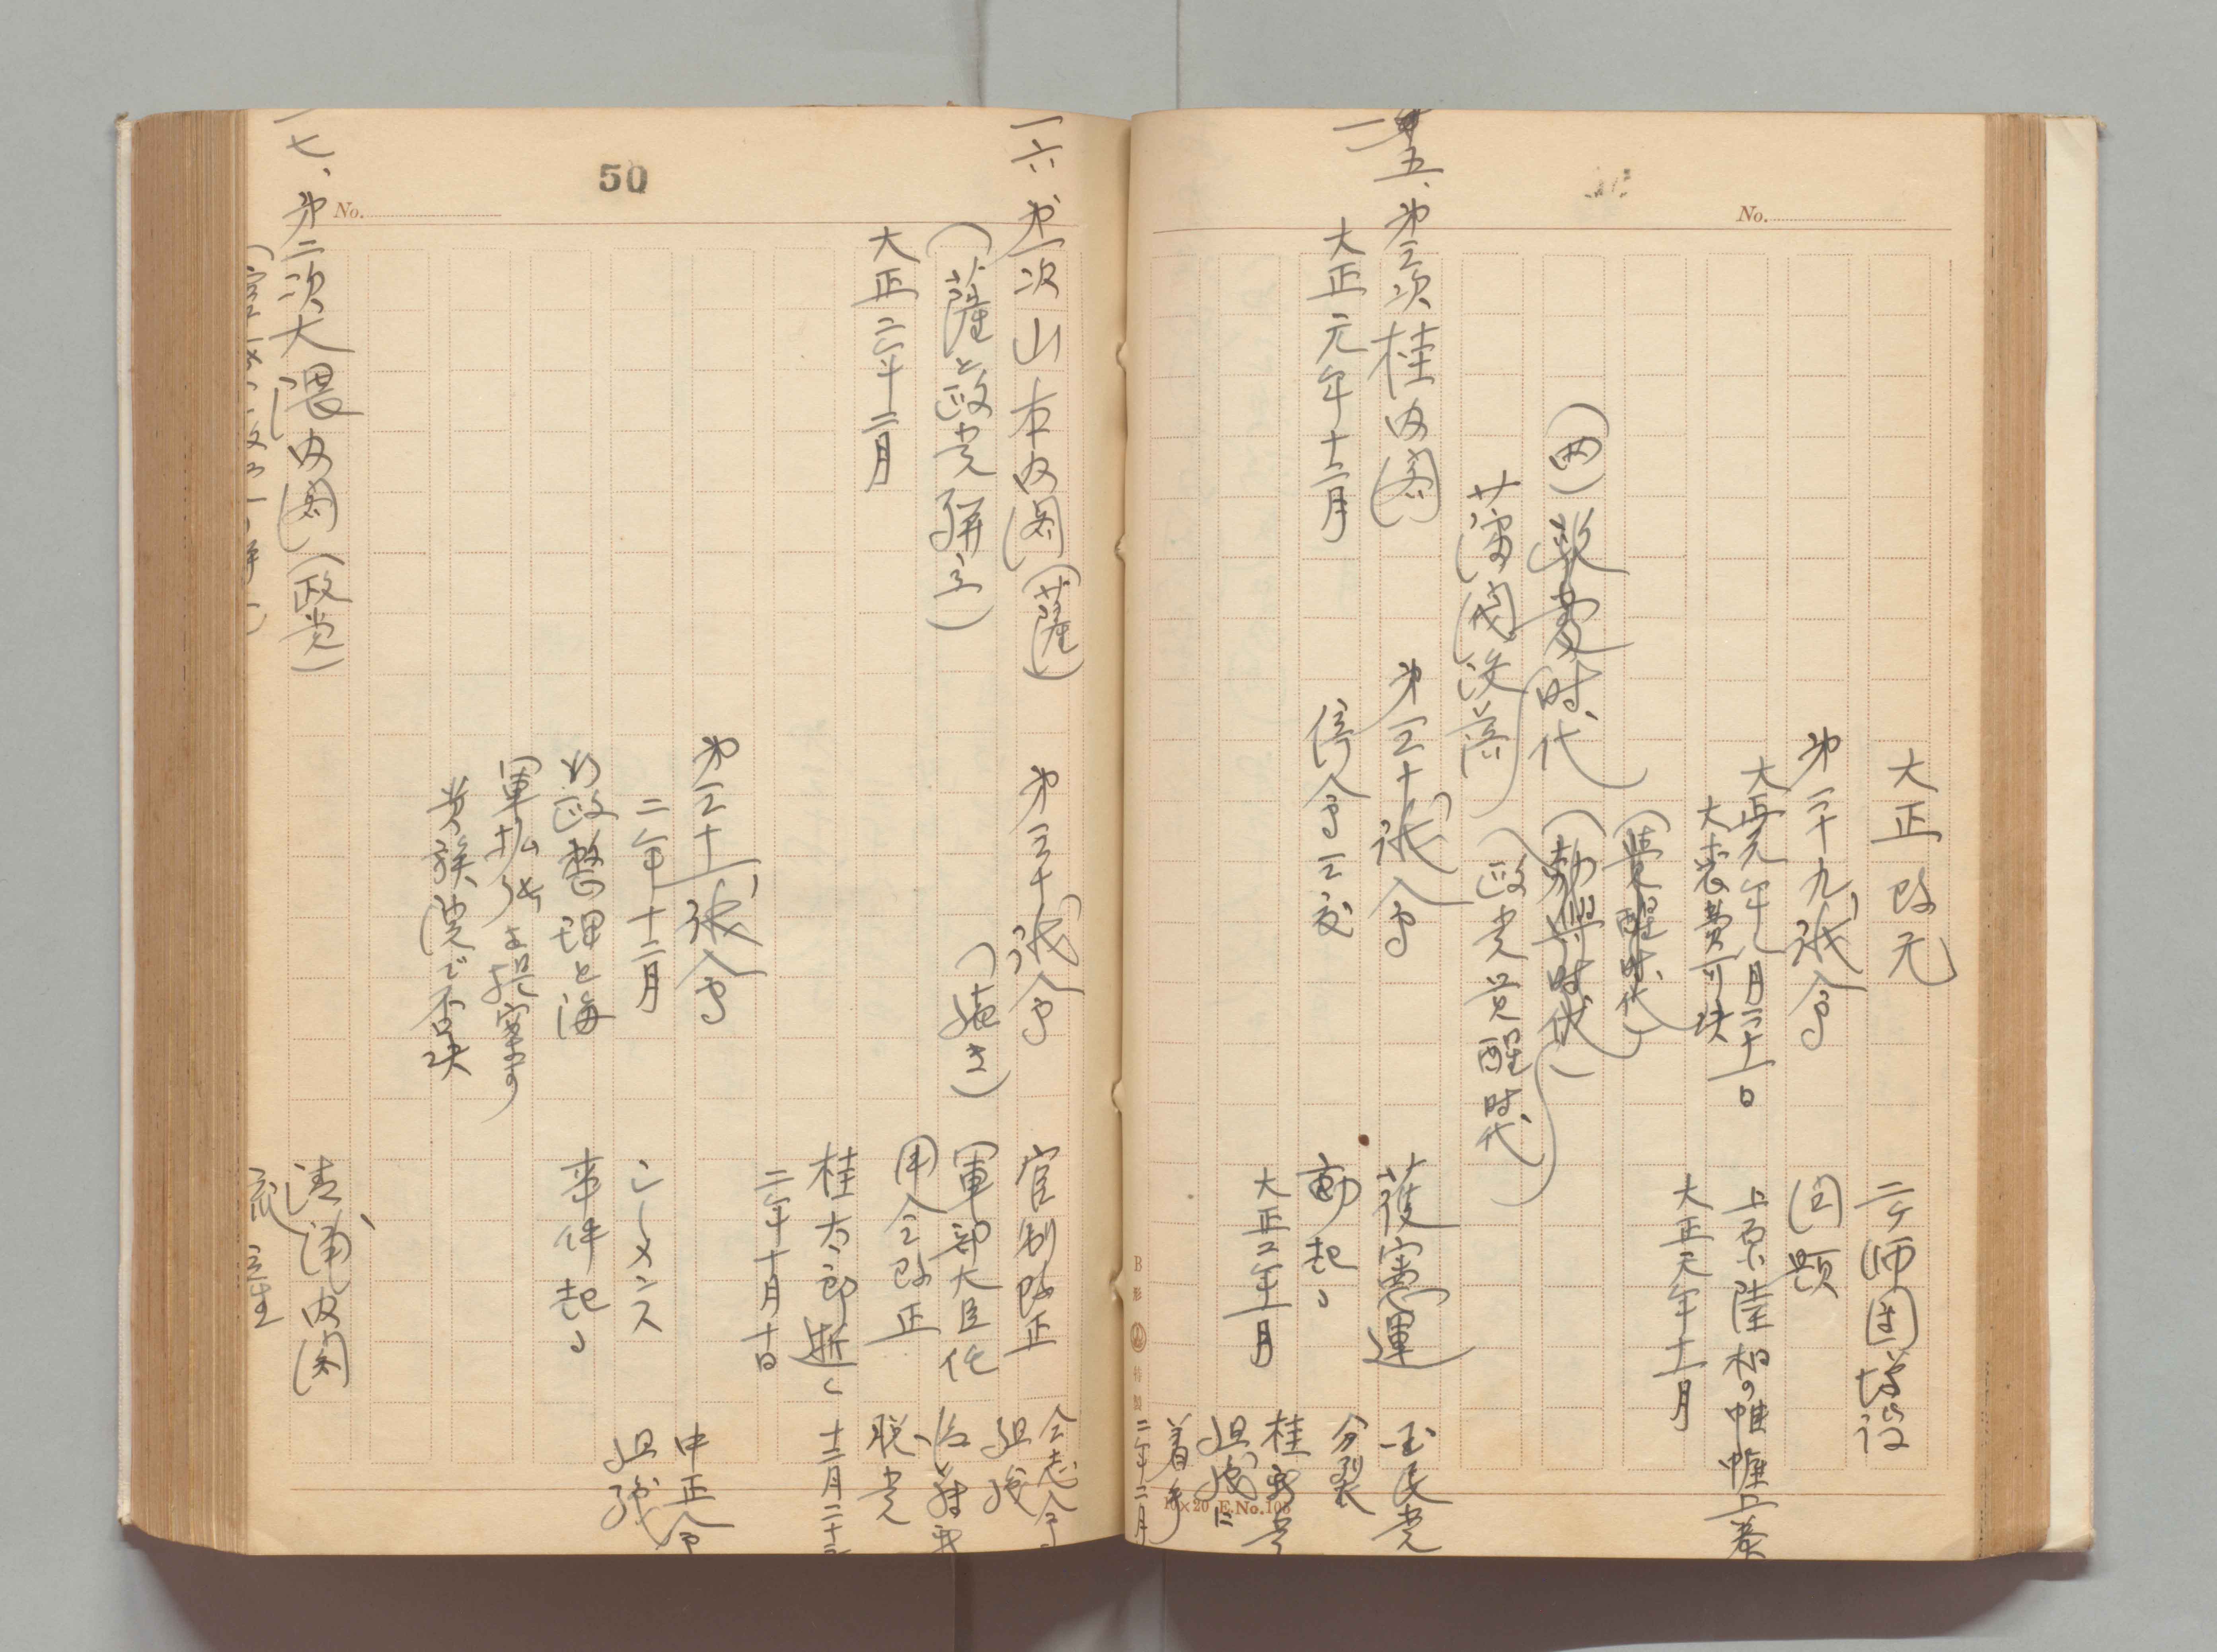 No.
大正改元
第二十九議会
大正元年八月二十一日
大喪費可決
二ケ師団増設
問題
上原陸相の帷幄上奏
大正元年十二月
(覚醒時代)
(四)政変時代
(勃興時代)
藩閥没落
(政党覚醒時代)
一五、第三次桂内閣
大正元年十二月
第三十議会
停会三度
護憲運
動起る
大正二年一月
国民党
分裂
桂新党
組織に
着手
二年二月
B形 特製
10×20 E.No.108
50
No.
一六、第一次山本内閣(薩)
(薩と政党聯立)
大正二年二月
第三十議会
(続き)
官制改正
軍部大臣任
用令改正
桂太郎逝く
二年十月十日
仝志会
組織
後藤新
脱党
十二月二十三
第三十一議会
二年十二月
行政整理と海
軍拡張を提案す
貴族院で否決
シーメンス
事件起る
中正会
組織
一七、第二次大隈内閣(政党)
清浦内閣
流産